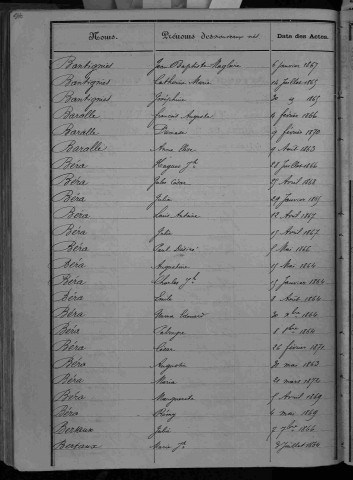 Noms. Prénoms des nouveaux nés Date des Actes.
Bantignies Jean Baptiste 6 janvier 1867
Bantignies Catherine Marie 14 Juillet 1865
Bantignies Joséphine 30 9 1865
Baralle François Auguste 4 février 1866
Baralle 9 février 1870
Baralle Anne 9 Août 1863
Béra Jh 28 Juillet 1866
Béra Jules César 27 Avril 1868
Béra Julia 29 Janvier
Béra Louis Antoine 12 Avril 1867
Béra Julie 17 Avril 1867
Béra Paul Désiré Mai 1866
Béra Augustine 17 Mai 1864
Béra Charles Jh 17 janvier 1864
Béra Emile 8 Août 1864
Béra Edouard 30 Xbre 1864
Béra 8bre 1864
Béra Pierre 26 février 1871
Béra Augustin 30 mai 1863
Béra Maria 21 mars 1872
Béra Marguerite 5 Avril 1869
Béra Rémy 4 mai 1869
Berteaux Julie 7bre 1866
Berteaux Marie Jh Juillet 1864